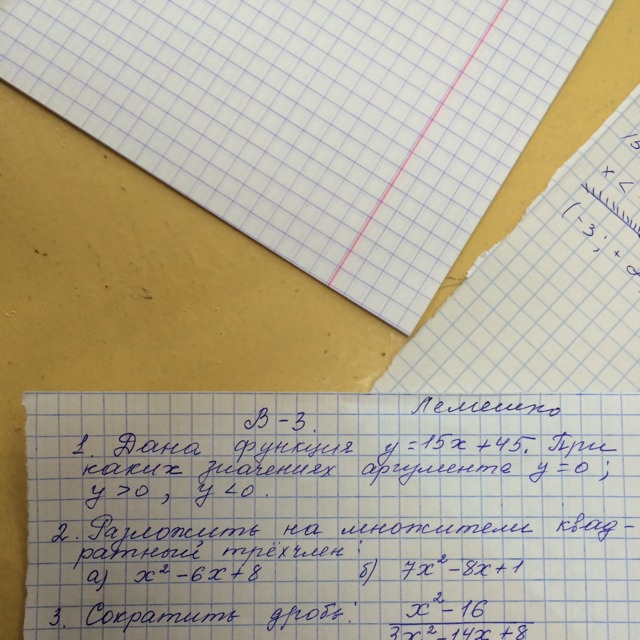 x <
(-3; +
В-3. Лемешко
1. Дана функция y=15x+45. При
каких значениях аргумента y=0;
y>0, y<0.
2. Разложить на множители квад-
ратный трёхчлен:
а) x²-6x+8 б) 7x²-8x+1
3. Сократить дробь: x²-16
3x²-14x+8